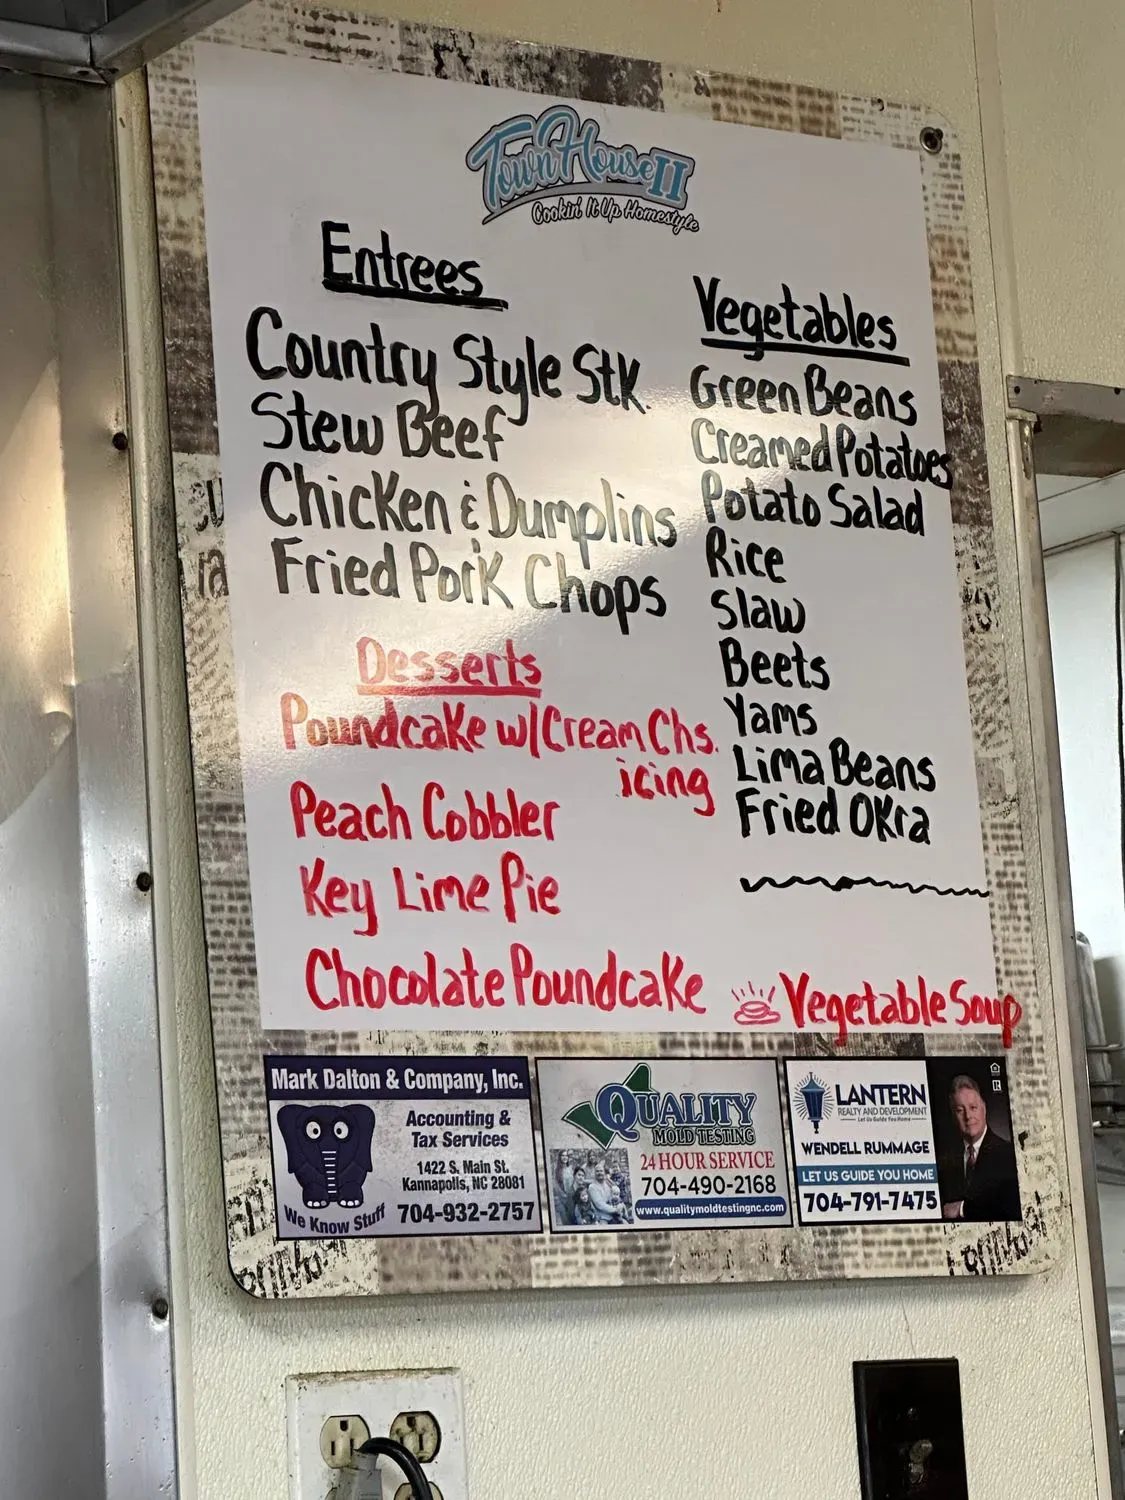 TownHouse II
Cookin' It Up Homestyle
Entrees
Country Style Stk.
Stew Beef
Chicken & Dumplins
Fried Pork Chops
Desserts
Poundcake w/Cream Chs.
icing
Peach Cobbler
Key Lime Pie
Chocolate Poundcake
Vegetables
Green Beans
Creamed Potatoes
Potato Salad
Rice
Slaw
Beets
Yams
Lima Beans
Fried Okra
Vegetable Soup
Mark Dalton & Company, Inc.
Accounting &
Tax Services
1422 S. Main St.
Kannapolis, NC 28081
We Know Stuff
704-932-2757
QUALITY
MOLD TESTING
24 HOUR SERVICE
704-490-2168
www.qualitymoldtestingnc.com
LANTERN
REALTY AND DEVELOPMENT
Let Us Guide You Home
WENDELL RUMMAGE
LET US GUIDE YOU HOME
704-791-7475